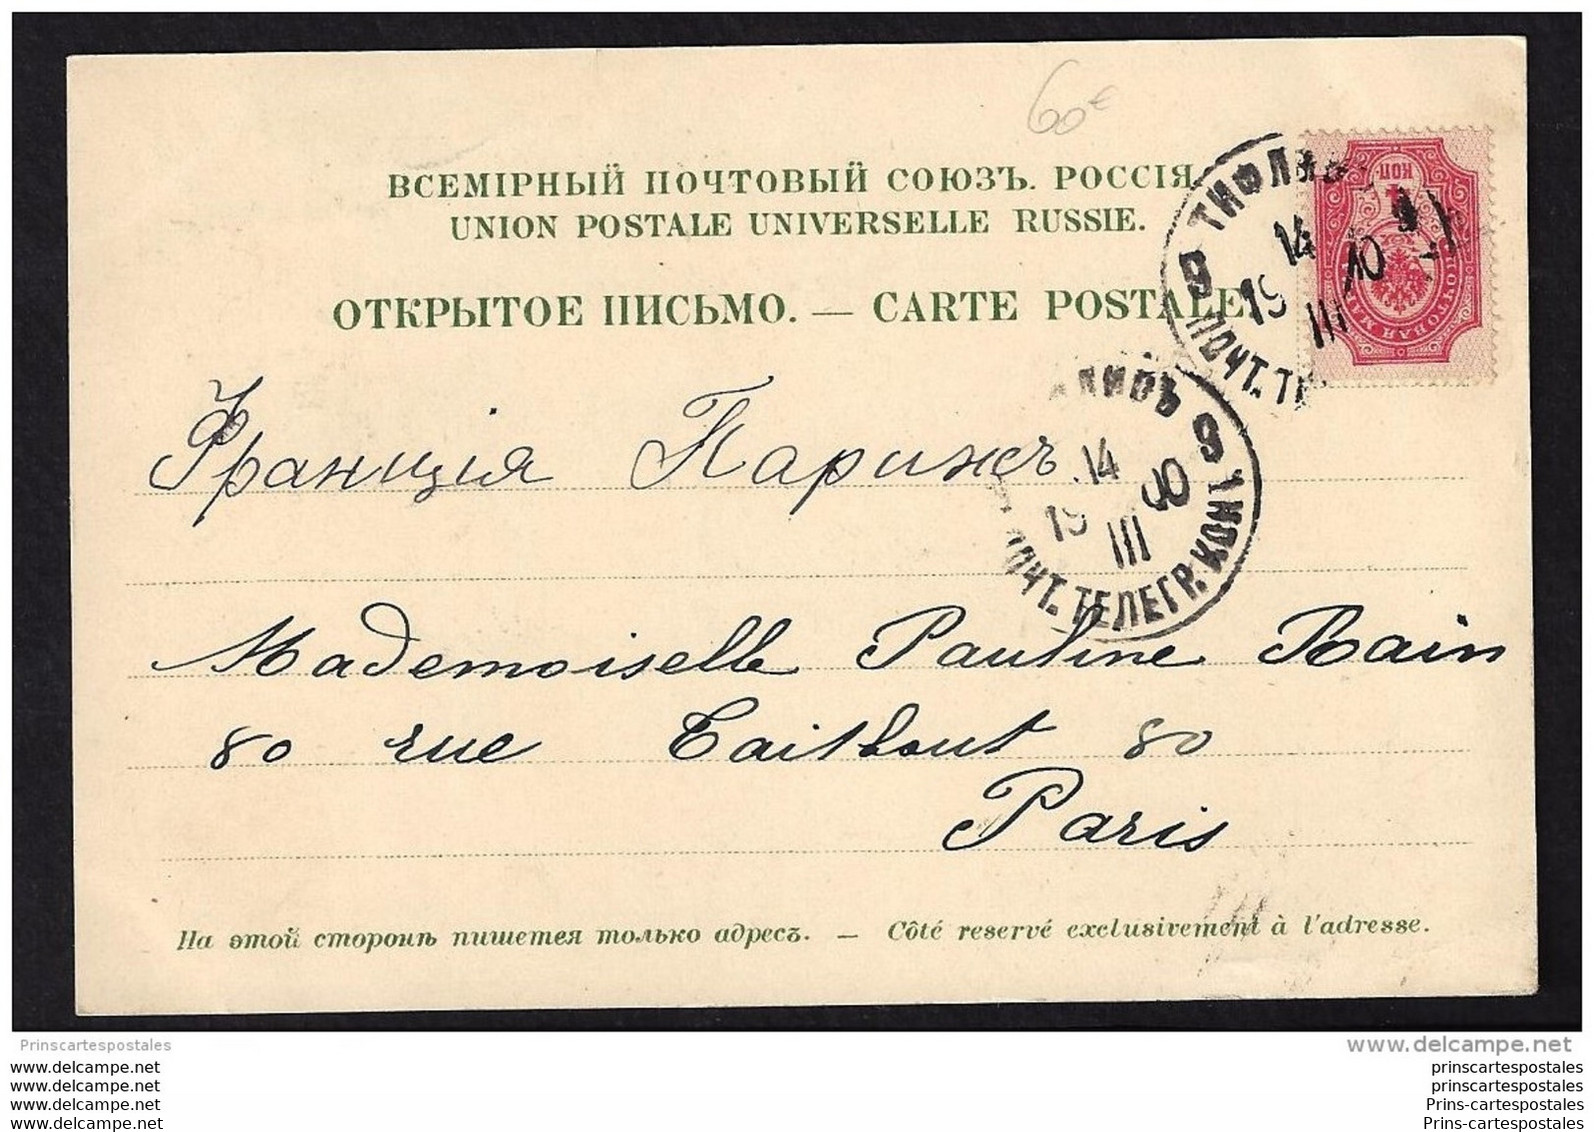 60€
ВСЕМІРНЫЙ ПОЧТОВЫЙ СОЮЗЪ. РОССІЯ
UNION POSTALE UNIVERSELLE RUSSIE.
ОТКРЫТОЕ ПИСЬМО. — CARTE POSTALE
9 ТИФЛИСЪ 9
14 III 19
ПОЧТ. ТЕ
4 КОП
ПОЧТОВАЯ МАРКА
Франція Парижъ
ЛИСЪ 9
14 III 1900
ПОЧТ. ТЕЛЕГР. КОНТ
Mademoiselle Pauline Rain
80 rue Taitbout 80
Paris
На этой сторонѣ пишется только адресъ. — Côté reservé exclusivement à l'adresse.
Prinscartespostales
www.delcampe.net
www.delcampe.net
www.delcampe.net
www.delcampe.net
www.delcampe.net
prinscartespostales
prinscartespostales
Prins-cartespostales
Prins-cartespostales